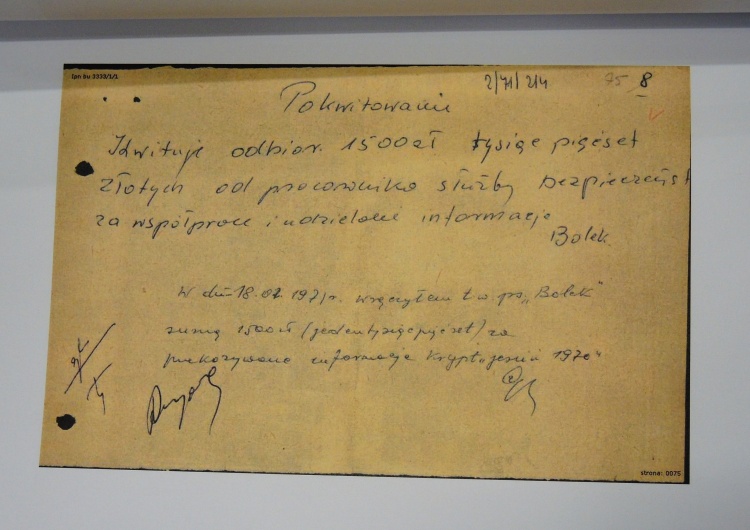 ipn bu 3333/1/1
2/71/214 75 8
Pokwitowanie
Kwituje odbior. 1500 zł tysiąc pięćset
złotych od pracownika służby bezpieczeńst
za współprace i udzielanie informacje
Bolek
W dn 18.01.1971r. wręczyłem t.w. ps. „Bolek"
sumę 1500 zł (jedentysiącpięćset) za
przekazywane informacje krypt. „Jesień 1970"
strona: 0075